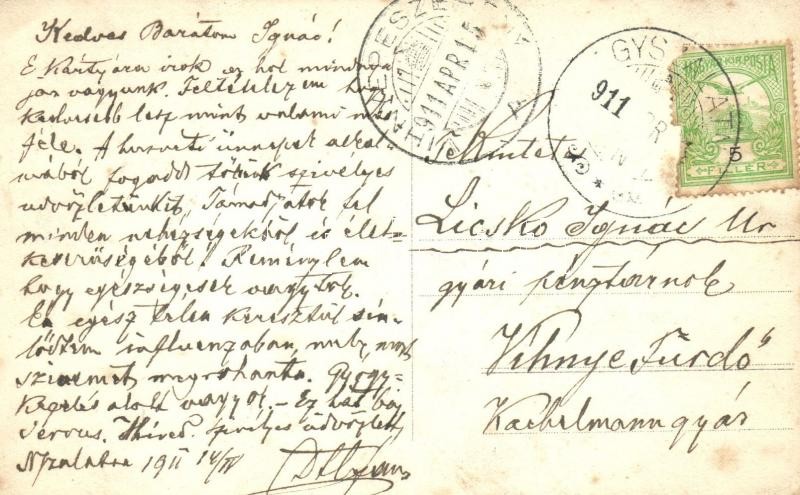 Kedves Barátom Ignác!
E kártyára irok ez hol mindnyá
jan vagyunk. Feltételezem ho
kedvesebb lesz mint valami más
féle. A husveti ünnepet alkal-
mából fogadd tőlünk szivélyes
üdvözletünket. Támadjatok fel
minden nehézségekből és élet-
keserűségéből! Reménylem
hogy egészségesek vagytok.
Én egész télen keresztül sin-
lődtem influenzában, mely most
szivemet megrohanta. Gyógy-
kezelés alatt vagyok. – Ez hát baj
Servus. Hived szivélyes üdvözlettel
N. 1911 14/IV
911 APR 15
GYS
911
MAGYAR KIR. POSTA
5
FILLÉR
Licsko Ignác Ur
gyári pénztarnok
Vihnye Fürdő
Kachelmann gyár